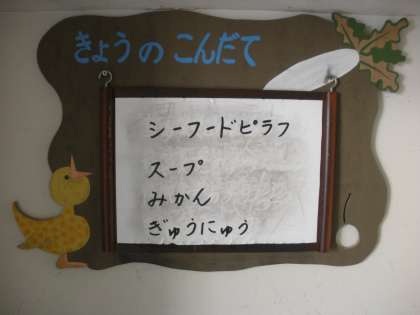 きょうの こんだて
シーフードピラフ
スープ
みかん
ぎゅうにゅう